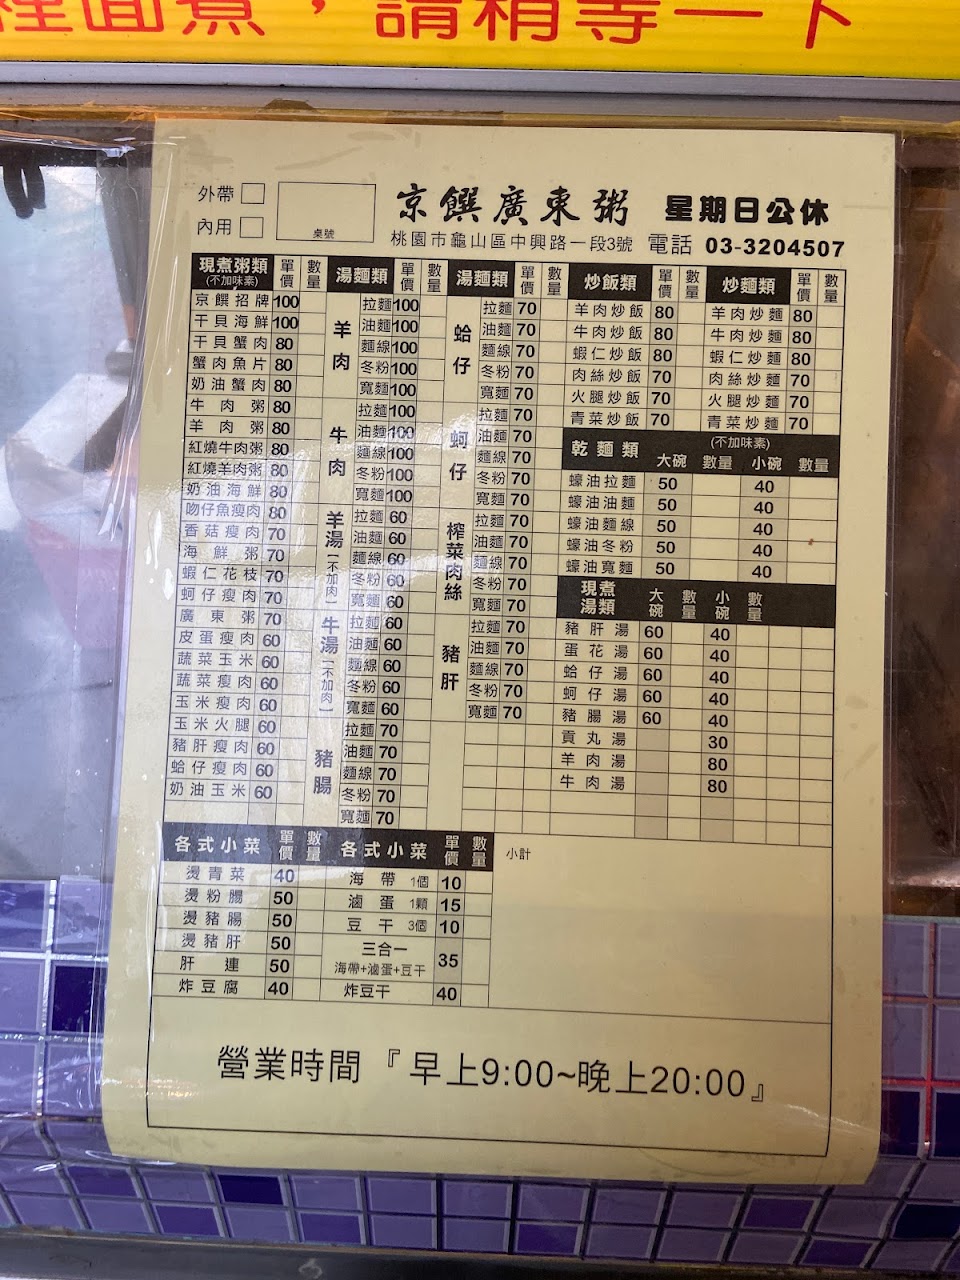 麵煮，請稍等一下
外帶
內用
桌號
京饌廣東粥 星期日公休
桃園市龜山區中興路一段3號 電話 03-3204507
現煮粥類 (不加味素) 單價 數量
京饌招牌 100
干貝海鮮 100
干貝蟹肉 80
蟹肉魚片 80
奶油蟹肉 80
牛肉粥 80
羊肉粥 80
紅燒牛肉粥 80
紅燒羊肉粥 80
奶油海鮮 80
吻仔魚瘦肉 80
香菇瘦肉 70
海鮮粥 70
蝦仁花枝 70
蚵仔瘦肉 70
廣東粥 70
皮蛋瘦肉 60
蔬菜玉米 60
蔬菜瘦肉 60
玉米瘦肉 60
玉米火腿 60
豬肝瘦肉 60
蛤仔瘦肉 60
奶油玉米 60
湯麵類 單價 數量
羊肉
拉麵 100
油麵 100
麵線 100
冬粉 100
寬麵 100
牛肉
拉麵 100
油麵 100
麵線 100
冬粉 100
寬麵 100
羊湯(不加肉)
拉麵 60
油麵 60
麵線 60
冬粉 60
寬麵 60
牛湯(不加肉)
拉麵 60
油麵 60
麵線 60
冬粉 60
寬麵 60
豬腸
拉麵 70
油麵 70
麵線 70
冬粉 70
寬麵 70
湯麵類 單價 數量
蛤仔
拉麵 70
油麵 70
麵線 70
冬粉 70
寬麵 70
蚵仔
拉麵 70
油麵 70
麵線 70
冬粉 70
寬麵 70
榨菜肉絲
拉麵 70
油麵 70
麵線 70
冬粉 70
寬麵 70
豬肝
拉麵 70
油麵 70
麵線 70
冬粉 70
寬麵 70
炒飯類 單價 數量
羊肉炒飯 80
牛肉炒飯 80
蝦仁炒飯 80
肉絲炒飯 70
火腿炒飯 70
青菜炒飯 70
炒麵類 單價 數量
羊肉炒麵 80
牛肉炒麵 80
蝦仁炒麵 80
肉絲炒麵 70
火腿炒麵 70
青菜炒麵 70
乾麵類 (不加味素) 大碗 數量 小碗 數量
蠔油拉麵 50 40
蠔油油麵 50 40
蠔油麵線 50 40
蠔油冬粉 50 40
蠔油寬麵 50 40
現煮湯類 大碗 數量 小碗 數量
豬肝湯 60 40
蛋花湯 60 40
蛤仔湯 60 40
蚵仔湯 60 40
豬腸湯 60 40
貢丸湯 30
羊肉湯 80
牛肉湯 80
各式小菜 單價 數量
燙青菜 40
燙粉腸 50
燙豬腸 50
燙豬肝 50
肝連 50
炸豆腐 40
各式小菜 單價 數量
海帶 1個 10
滷蛋 1顆 15
豆干 3個 10
三合一
海帶+滷蛋+豆干 35
炸豆干 40
小計
營業時間『早上9:00~晚上20:00』